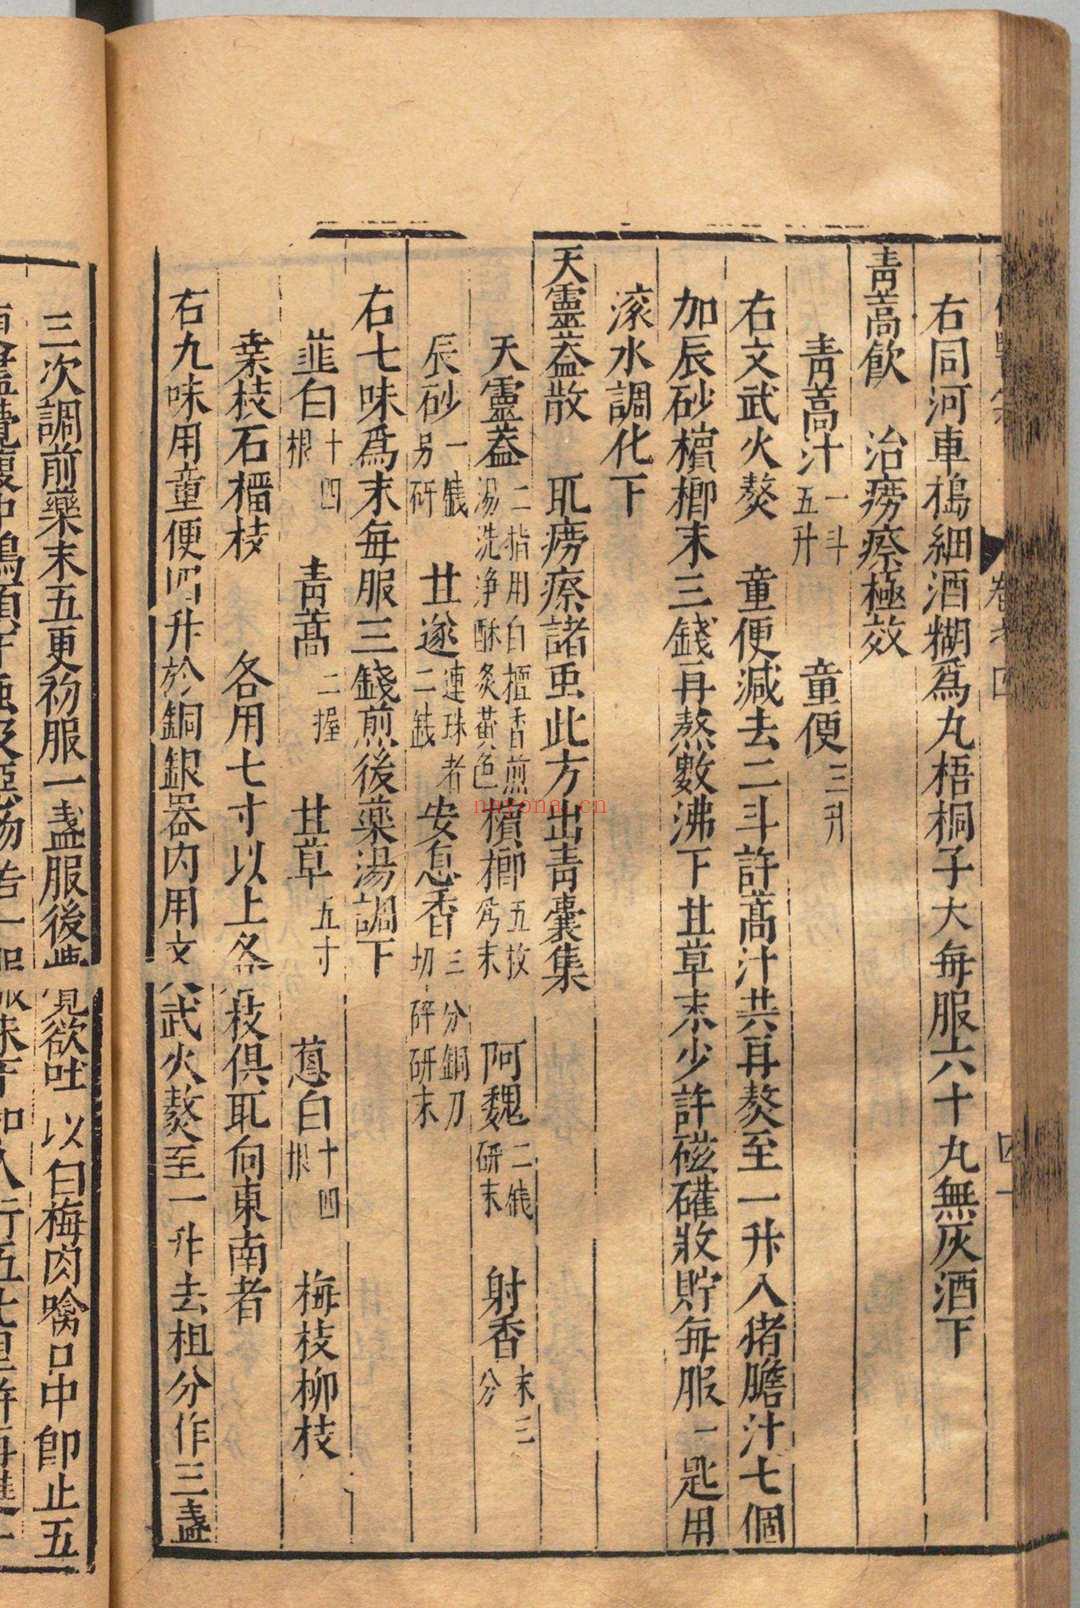 右同河車搗細酒糊爲丸梧桐子大每服六十丸無灰酒下
青蒿飲　治癆瘵極效
青蒿汁一斗五升　童便三升
右文武火熬　童便減去二斗許蒿汁共再熬至一升入猪膽汁七個
加辰砂檳榔末三錢再熬數沸下甘草末少許磁礶收貯每服一匙用
滚水調化下
天靈葢散　取癆瘵諸虫此方出青囊集
天靈葢二指用白檀香煎湯洗净酥炙黃色　檳榔五枚爲末　阿魏二錢研末　射香末三分
辰砂一錢另研　甘遂連珠者二錢　安息香三分銅刀切碎研末
右七味爲末每服三錢煎後薬湯調下
韮白十四根　青蒿二握　甘草五寸　蔥白十四根　梅枝柳枝
桒枝石榴枝　各用七寸以上各枝俱取向東南者
右九味用童便四升於銅銀器内用文武火熬至一升去柤分作三盞
三次調前藥末五更初服一盞服後覺欲吐以白梅肉噙口中即止五